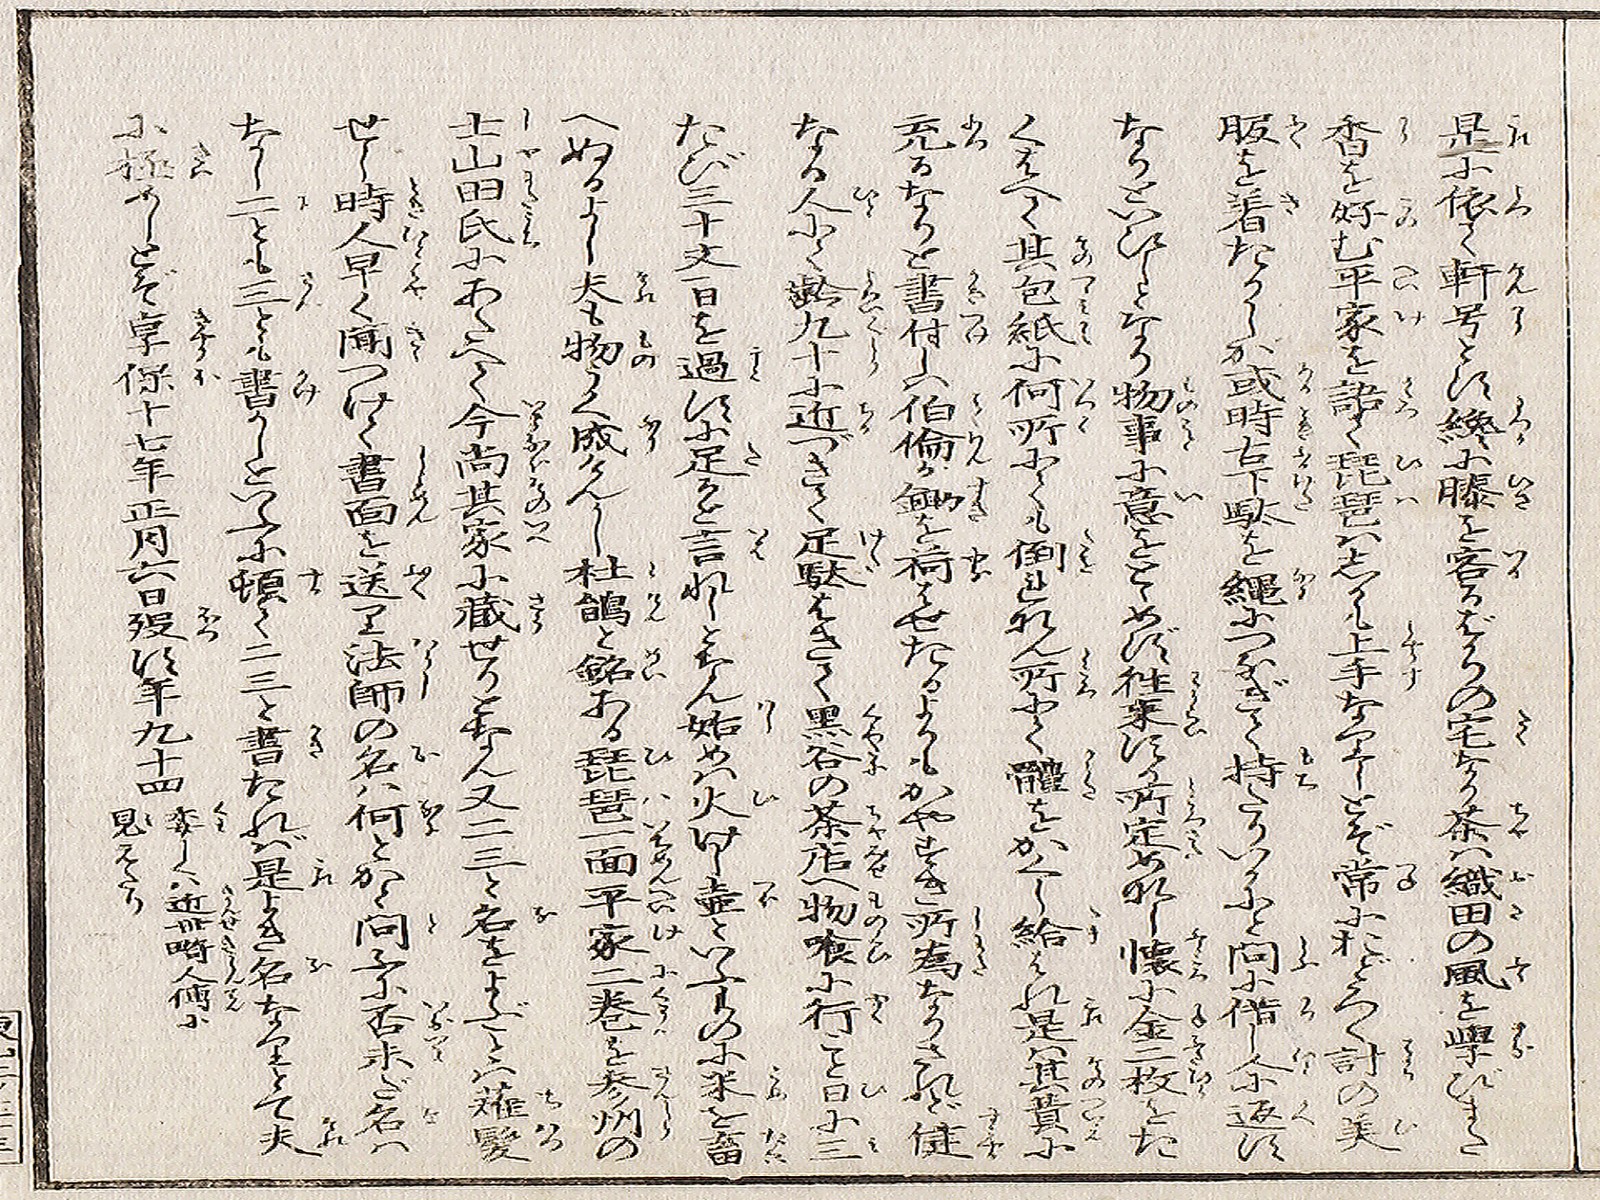 是に依て軒号とす纔に膝を容るばかりの宅なり茶は織田の風を学びまた
香を好む平家を語て琵琶はことに上手なりしとぞ常におどろく計の美
服を着たりしが或時古下駄を縄につなぎて持たりいかにと問に借し人に返す
なりといひしとなり物事に意をとゞめず往来する所定め無し懐に金二枚をた
くはへて其包紙に何所にても倒れなん所にて體をかくし給はれ是は其費に
充るなりと書付しは伯倫が鍤を荷はせたるよりもかやすき所為なりされど徒
なる人にて齢九十に近づきて足駄はきて黒谷の茶店へ物喰に行こと日に三
たび三十文一日を過すに足ると言れしとなん始めは火けし壺といふものに米を畜
へぬるよし夫も物うく成けんかし杜鵑と銘ある琵琶一面平家二巻を参州の
士山田氏にあたへて今尚其家に蔵せりとなん又二三と名をよぶことは薙髪
せし時人早く聞つけて書面を送る法師の名は何とかと問ふに否未だ名は
なし二とも三とも書かしといふに頓て二三と書たれば是よき名なりとて夫
に極めしとぞ享保十七年正月六日歿す年九十四
委しくは近世畸人傳に
見えたり